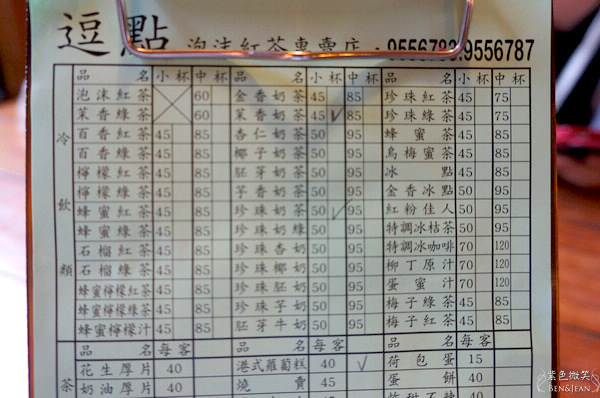 逗點 泡沫紅茶專賣店 · 9556783.9556787
品名 小杯 中杯 品名 小杯 中杯 品名 小杯 中杯
冷飲類
泡沫紅茶 60 金香奶茶 45 85 珍珠紅茶 45 75
茉香綠茶 60 茉香奶茶 45 85 珍珠綠茶 45 75
百香紅茶 45 85 杏仁奶茶 50 95 蜂蜜茶 45 85
百香綠茶 45 85 椰子奶茶 50 95 烏梅蜜茶 45 85
檸檬紅茶 45 85 胚芽奶茶 50 95 冰點 45 85
檸檬綠茶 45 85 芋香奶茶 50 95 金香冰點 50 95
蜂蜜紅茶 45 85 珍珠奶茶 50 95 紅粉佳人 50 95
蜂蜜綠茶 45 85 珍珠奶綠 50 95 特調冰桔茶 50 95
石榴紅茶 45 85 珍珠杏奶 50 95 特調冰咖啡 70 120
石榴綠茶 45 85 珍珠椰奶 50 95 柳丁原汁 70 120
蜂蜜檸檬紅茶 45 85 珍珠胚奶 50 95 蛋蜜汁 70 120
蜂蜜檸檬綠茶 45 85 珍珠芋奶 50 95 梅子綠茶 45 85
蜂蜜檸檬汁 45 85 胚芽牛奶 50 95 梅子紅茶 45 85
品名 每客 品名 每客 品名 每客
茶
花生厚片 40 港式蘿蔔糕 40 荷包蛋 15
奶油厚片 40 燒賣 45 蛋餅 40
紫色微笑
BEN&JEAN